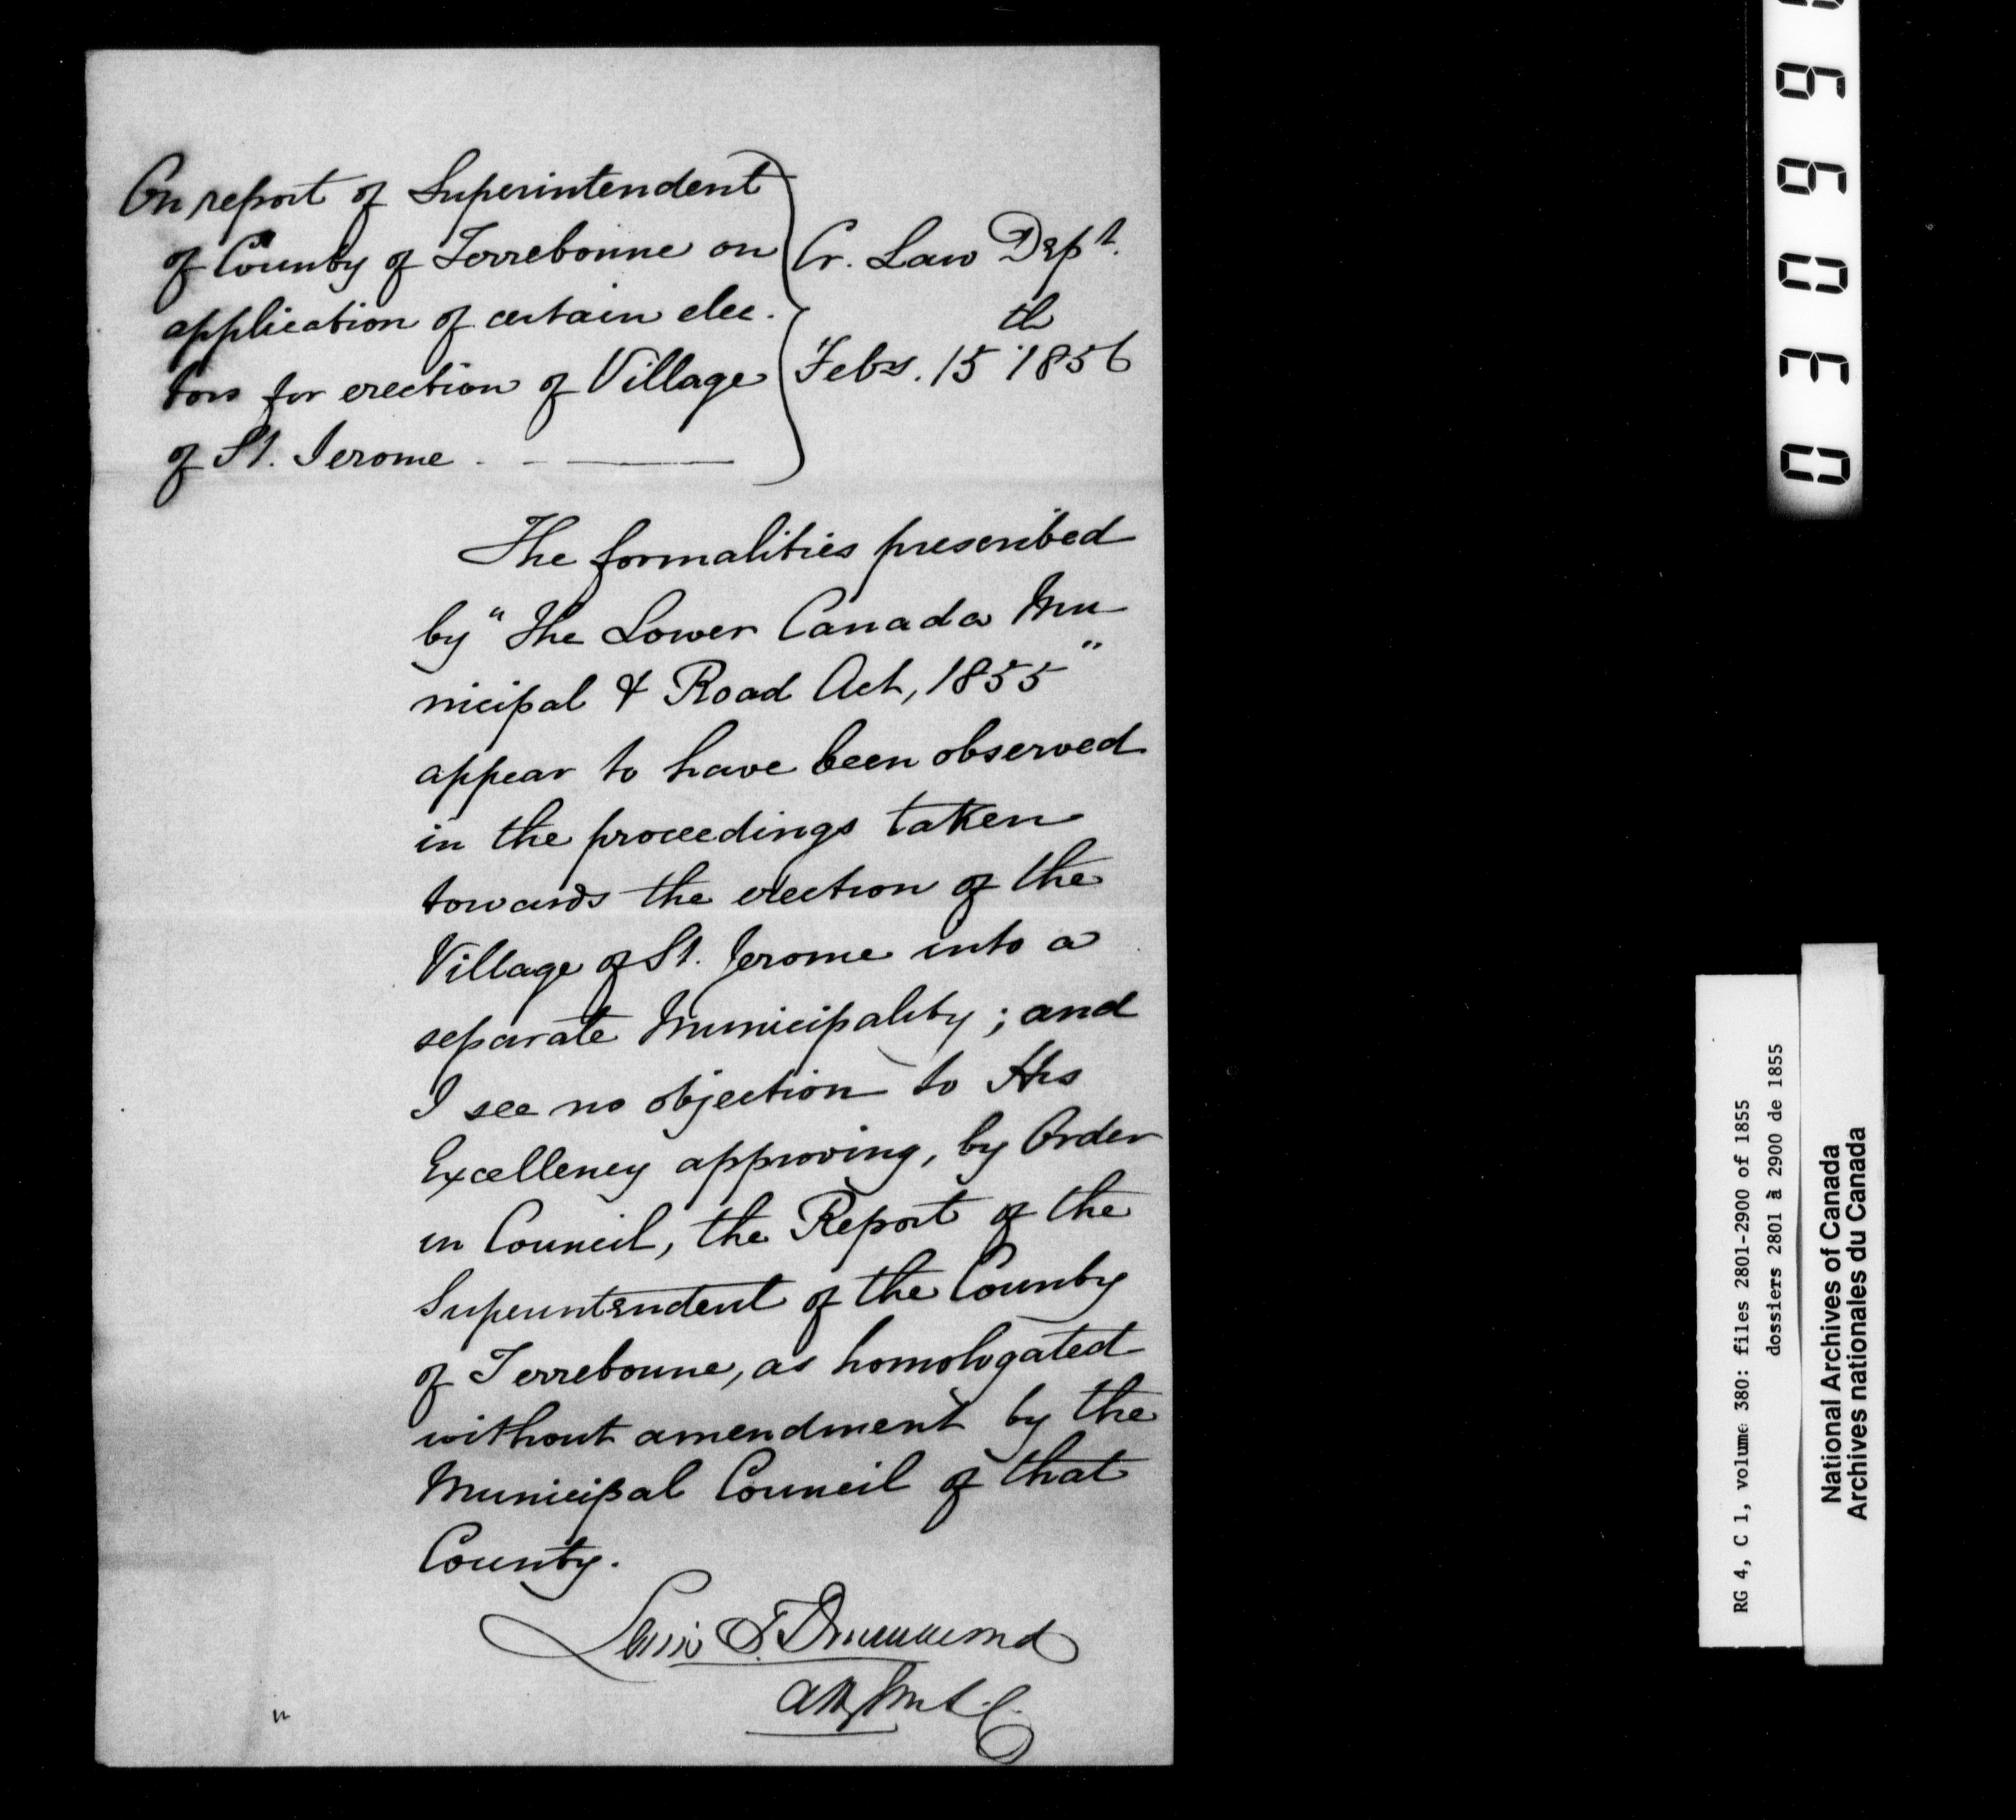 On report of Superintendent
of County of Terrebonne on
application of certain elec-
tors for erection of Village
of St. Jerome
Cr. Law Dept.
Feby. 15th 1856
The formalities prescribed
by "The Lower Canada Mu
nicipal & Road Act, 1855"
appear to have been observed
in the proceedings taken
towards the erection of the
Village of St. Jerome into a
separate Municipality; and
I see no objection to His
Excellency approving, by Order
in Council, the Report of the
Superintendent of the County
of Terrebonne, as homologated
without amendment by the
Municipal Council of that
County.
Lewis T. Drummond
Atty Gen L.C.
03099
RG 4, C 1, volume 380: files 2801-2900 of 1855
dossiers 2801 à 2900 de 1855
National Archives of Canada
Archives nationales du Canada